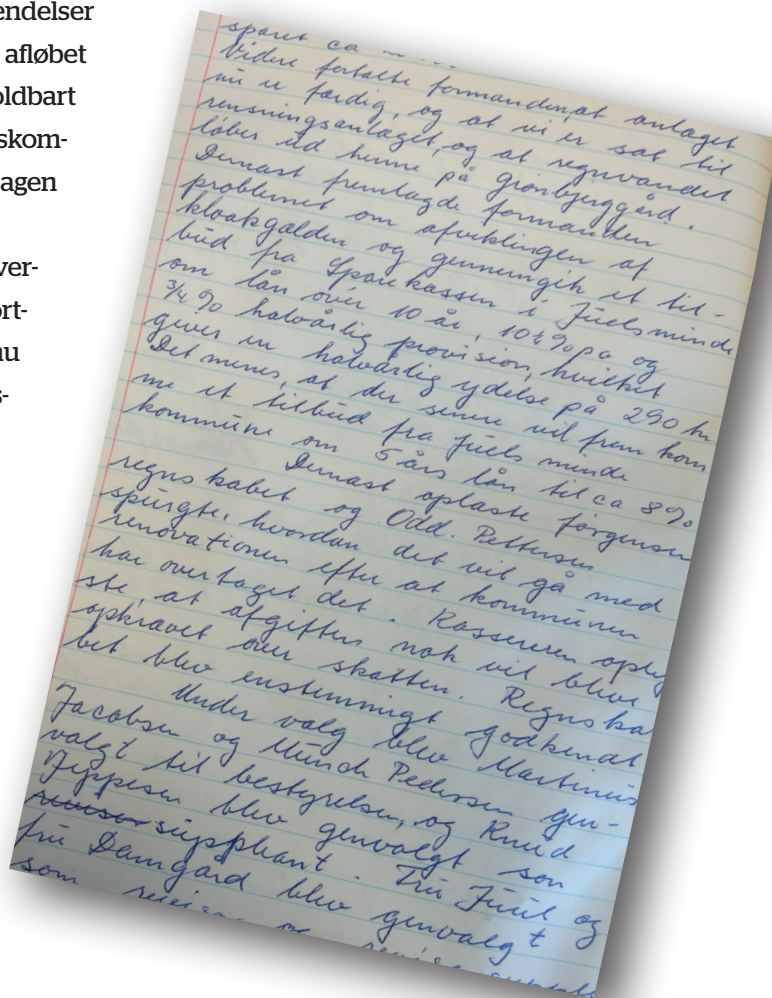 endelser
afløbet
oldbart
skom-
agen
ver-
ort-
nu
s-
sparet ca
Videre fortalte formanden, at anlaget
nu er færdig, og at vi er sat til
rensningsanlaget, og at regnvandet
løber ud henne på Grønbjerggård.
Dernæst fremlagde formanden
problemet om afviklingen af
kloakgælden og gennemgik et til-
bud fra Sparekassen i Juelsminde
om lån over 10 år, 10½% pa og
3/4 % halvårlig provision, hvilket
giver en halvårlig ydelse på 290 kr
Det menes, at der senere vil frem kom
me et tilbud fra Juelsminde
kommune om 5 års lån til ca 8%
Dernæst oplæste Jørgensen
regnskabet og Odd. Pettersen
spurgte, hvordan det vil gå med
renovationen efter at kommunen
har overtaget det. Kassereren oply
ste, at afgiften nok vil blive
opkrævet over skatten. Regnska
bet blev enstemmigt godkendt
Under valg blev Martinus
Jacobsen og Munch Pedersen gen-
valgt til bestyrelsen, og Knud
Jeppesen blev genvalgt som
revisor suppleant. Fru Juul og
fru Damgård blev genvalgt
som